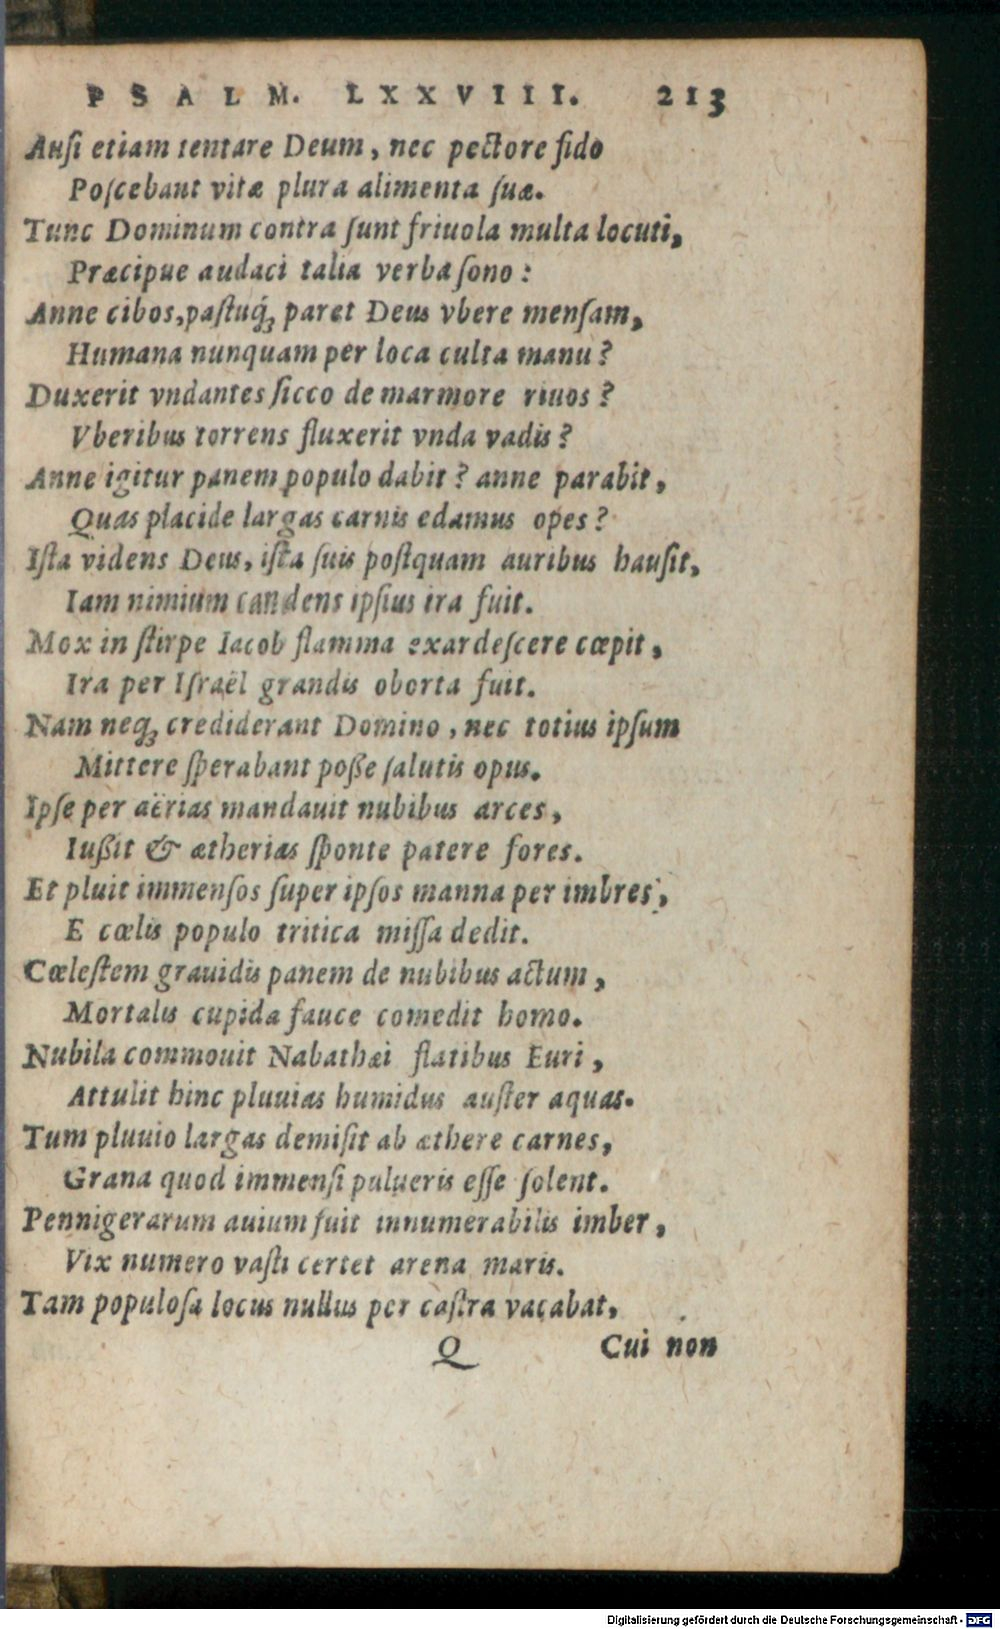 PSALM. LXXVIII. 213
Auſi etiam tentare Deum, nec pectore fido
Poſcebant vitæ plura alimenta ſuæ.
Tunc Dominum contra ſunt friuola multa locuti,
Præcipue audaci talia verba ſono:
Anne cibos, paſtuq́ꝫ paret Deus vbere menſam,
Humana nunquam per loca culta manu?
Duxerit vndantes ſicco de marmore riuos?
Vberibus torrens fluxerit vnda vadis?
Anne igitur panem populo dabit? anne parabit,
Quas placide largas carnis edamus opes?
Iſta videns Deus, iſta ſuis poſtquam auribus hauſit,
Iam nimium candens ipſius ira fuit.
Mox in ſtirpe Iacob flamma exardeſcere cœpit,
Ira per Iſraël grandis oborta fuit.
Nam neqꝫ crediderant Domino, nec totius ipſum
Mittere ſperabant poße ſalutis opus.
Ipſe per aërias mandauit nubibus arces,
Iußit & ætherias ſponte patere fores.
Et pluit immenſos ſuper ipſos manna per imbres,
E cœlis populo tritica miſſa dedit.
Cœleſtem grauidis panem de nubibus actum,
Mortalis cupida fauce comedit homo.
Nubila commouit Nabathæi flatibus Euri,
Attulit hinc pluuias humidus auſter aquas.
Tum pluuio largas demiſit ab æthere carnes,
Grana quod immenſi pulueris eſſe ſolent.
Pennigerarum auium fuit innumerabilis imber,
Vix numero vaſti certet arena maris.
Tam populoſa locus nullus per caſtra vacabat,
Q Cui non
Digitalisierung gefördert durch die Deutsche Forschungsgemeinschaft - DFG